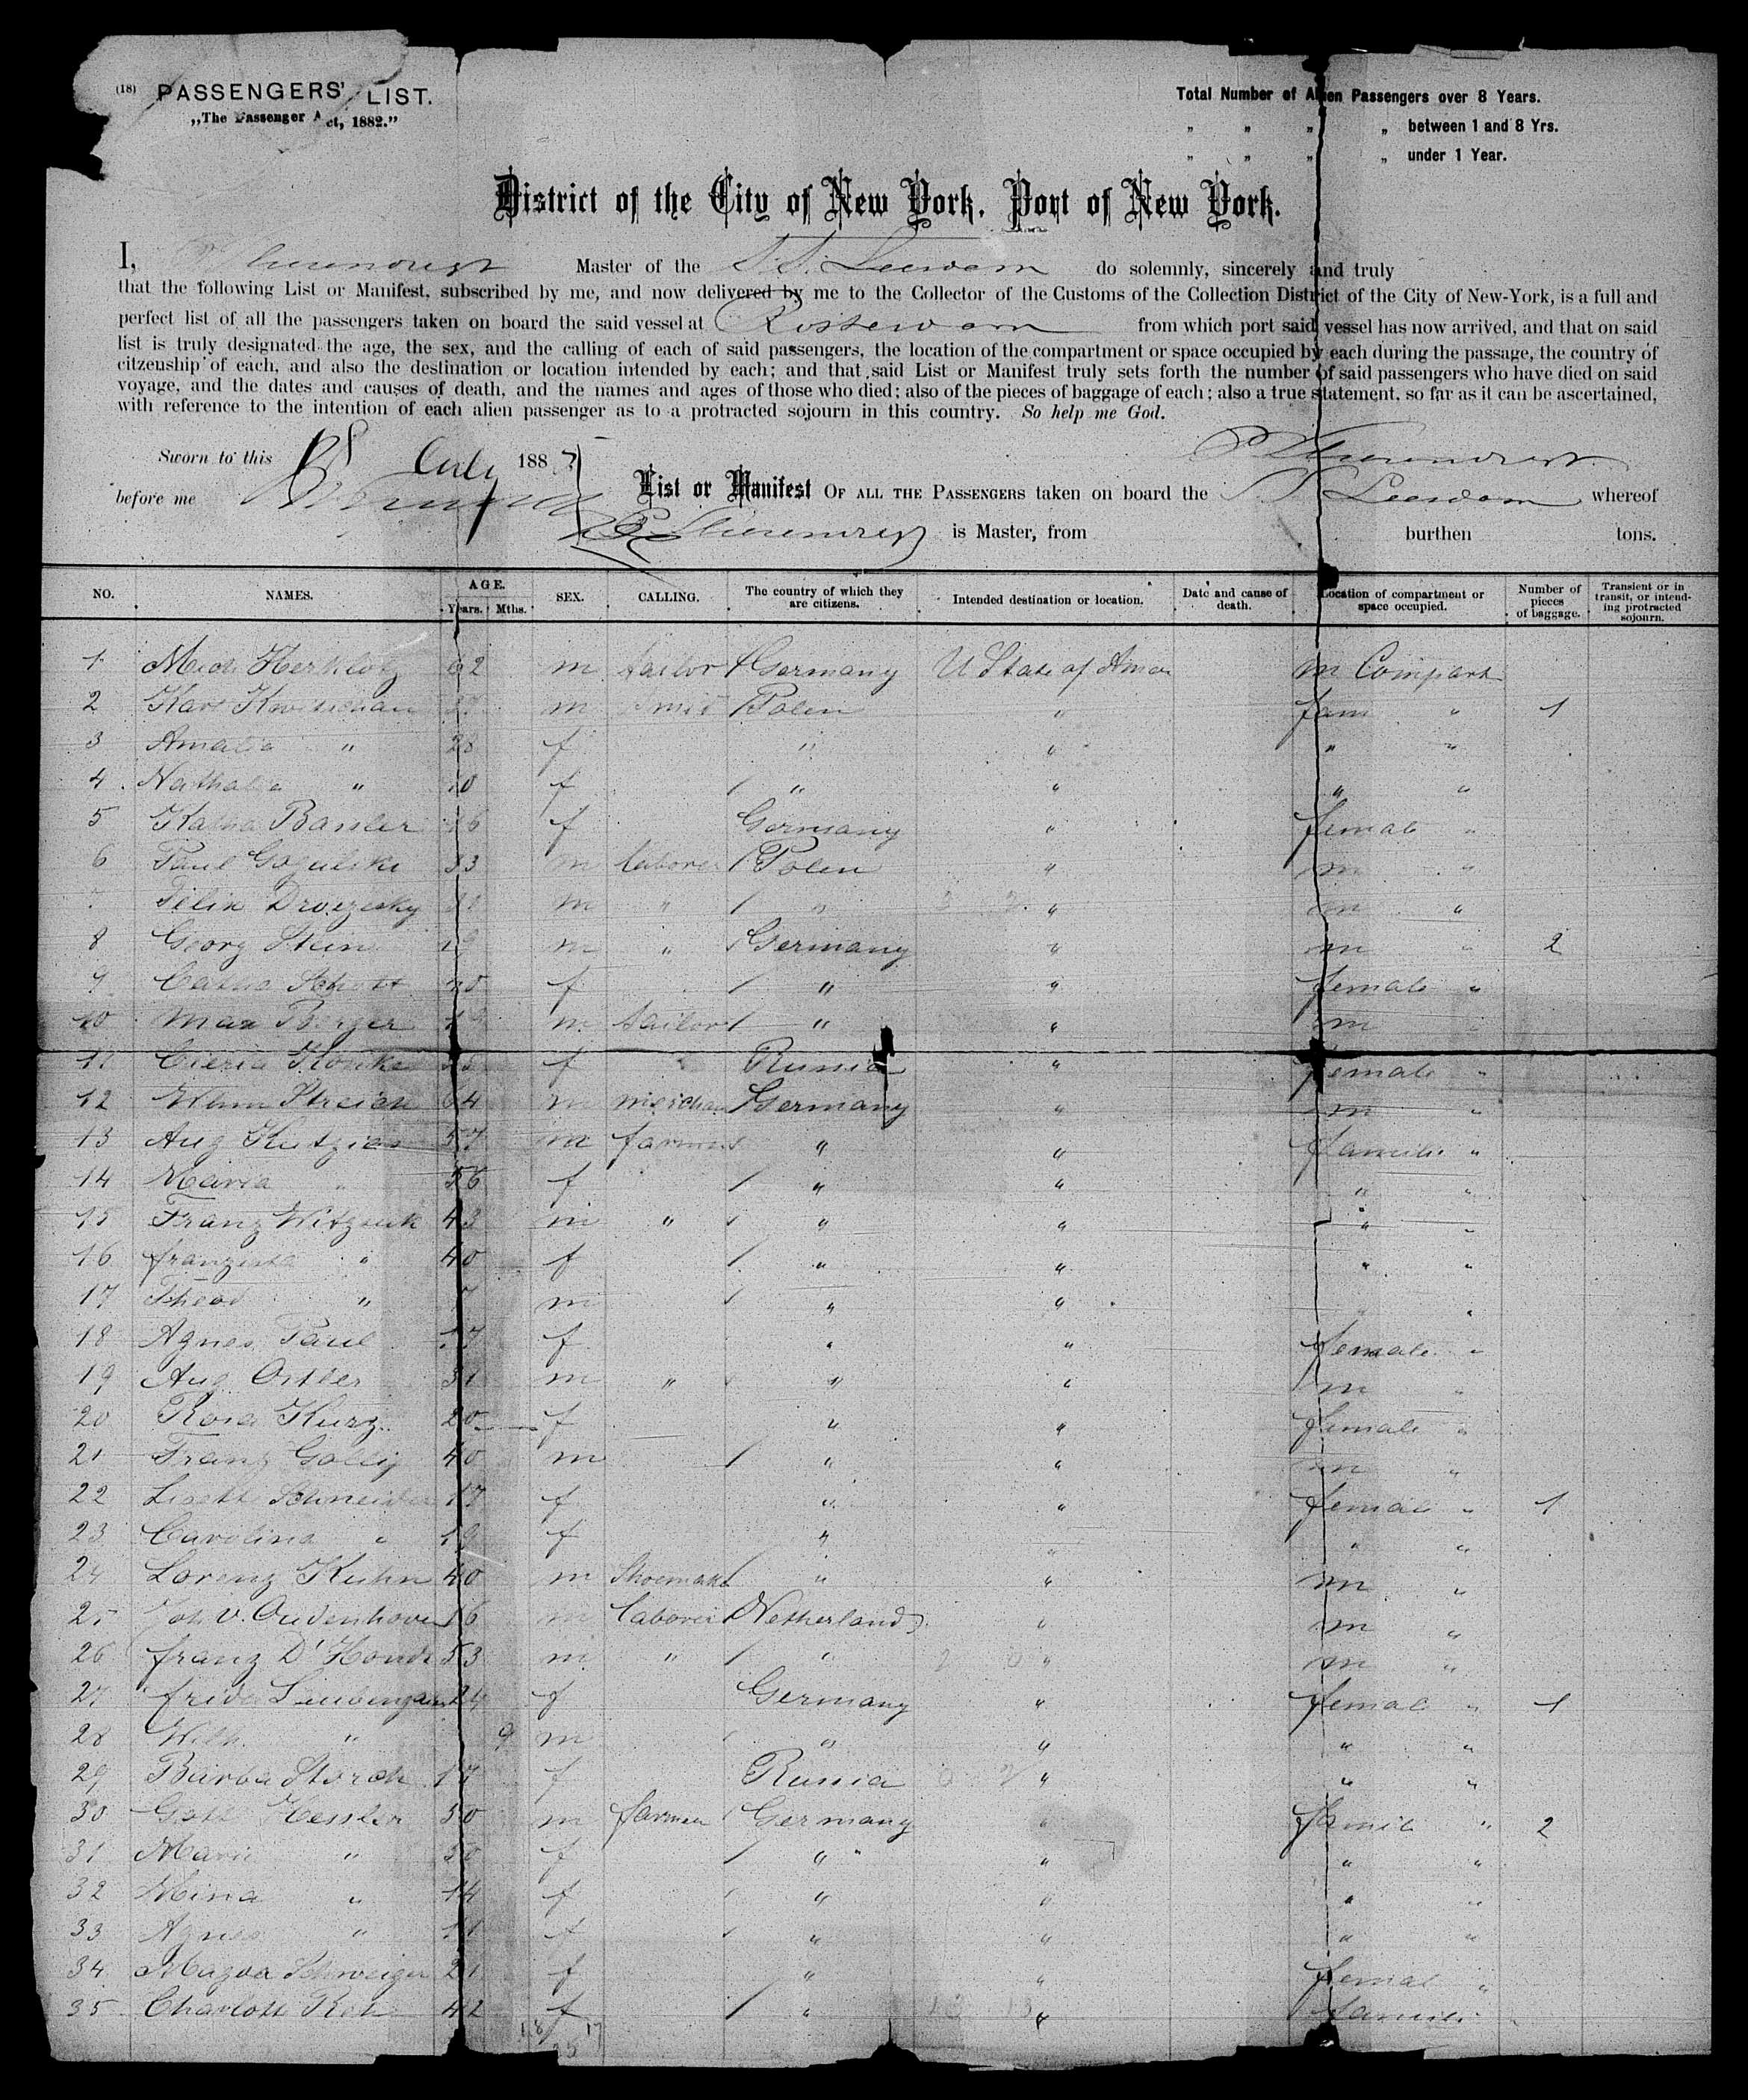 (18) PASSENGERS' LIST.
„The Passenger Act, 1882.”
Total Number of Alien Passengers over 8 Years.
„ „ „ „ between 1 and 8 Yrs.
„ „ „ „ under 1 Year.
District of the City of New York, Port of New York.
I, Master of the S.S. Leerdam do solemnly, sincerely and truly
that the following List or Manifest, subscribed by me, and now delivered by me to the Collector of the Customs of the Collection District of the City of New-York, is a full and
perfect list of all the passengers taken on board the said vessel at Rotterdam from which port said vessel has now arrived, and that on said
list is truly designated the age, the sex, and the calling of each of said passengers, the location of the compartment or space occupied by each during the passage, the country of
citzenship of each, and also the destination or location intended by each; and that said List or Manifest truly sets forth the number of said passengers who have died on said
voyage, and the dates and causes of death, and the names and ages of those who died; also of the pieces of baggage of each; also a true statement, so far as it can be ascertained,
with reference to the intention of each alien passenger as to a protracted sojourn in this country. So help me God.
Sworn to this 18 July 1887
before me
List or Manifest OF ALL THE PASSENGERS taken on board the S.S. Leerdam whereof
is Master, from burthen tons.
NO. NAMES. AGE. Years. Mths. SEX. CALLING. The country of which they are citizens. Intended destination or location. Date and cause of death. Location of compartment or space occupied. Number of pieces of baggage. Transient or in transit, or intending protracted sojourn.
1 Herklotz 62 m tailor Germany U State of Amer m Compart
2 Karl m Smid Polen " fam " 1
3 Amalia " 28 f " " " "
4 Nathalia " 10 f " " " "
5 Katha Banler 16 f Germany " female "
6 Paul Gogulski 33 m laborer Polen " m "
7 Felix m " " " m "
8 Georg Stein 19 m " Germany " m " 2
9 Catha Schott f " " female "
10 Max Berger 19 m tailor " " m "
11 f Russia " female "
12 Wilhm Streich 64 m merchan Germany " m "
13 Aug 57 m farmer " " famili "
14 Maria " 56 f " " " "
15 Franz 43 m " " " " "
16 franziska " 40 f " " " "
17 Theod " 7 m " " "
18 Agnes Paul 17 f " " female "
19 Aug Ostler 31 m " " " m "
20 Rosa Kurz 20 f " " female "
21 Franz 40 m " " m "
22 Lisette Schneider 17 f " " female " 1
23 Carolina " 19 f " " " "
24 Lorenz Kuhn 40 m Shoemake " " m "
25 Joh v. Oudenhove 16 m laborer Netherlands " m "
26 franz D'Hondt 53 m " " " m "
27 frida 24 f Germany " femal " 1
28 Wilh. " 9 m " " " "
29 Barba Storch 17 f Russia " " "
30 Gottl Hessler 50 m farmer Germany " famil " 2
31 Marie " 50 f " " " "
32 Mina " 14 f " " " "
33 Agnes " 11 f " " " "
34 Magda Schweiger 21 f " " femal "
35 Charlott 42 f " " famili